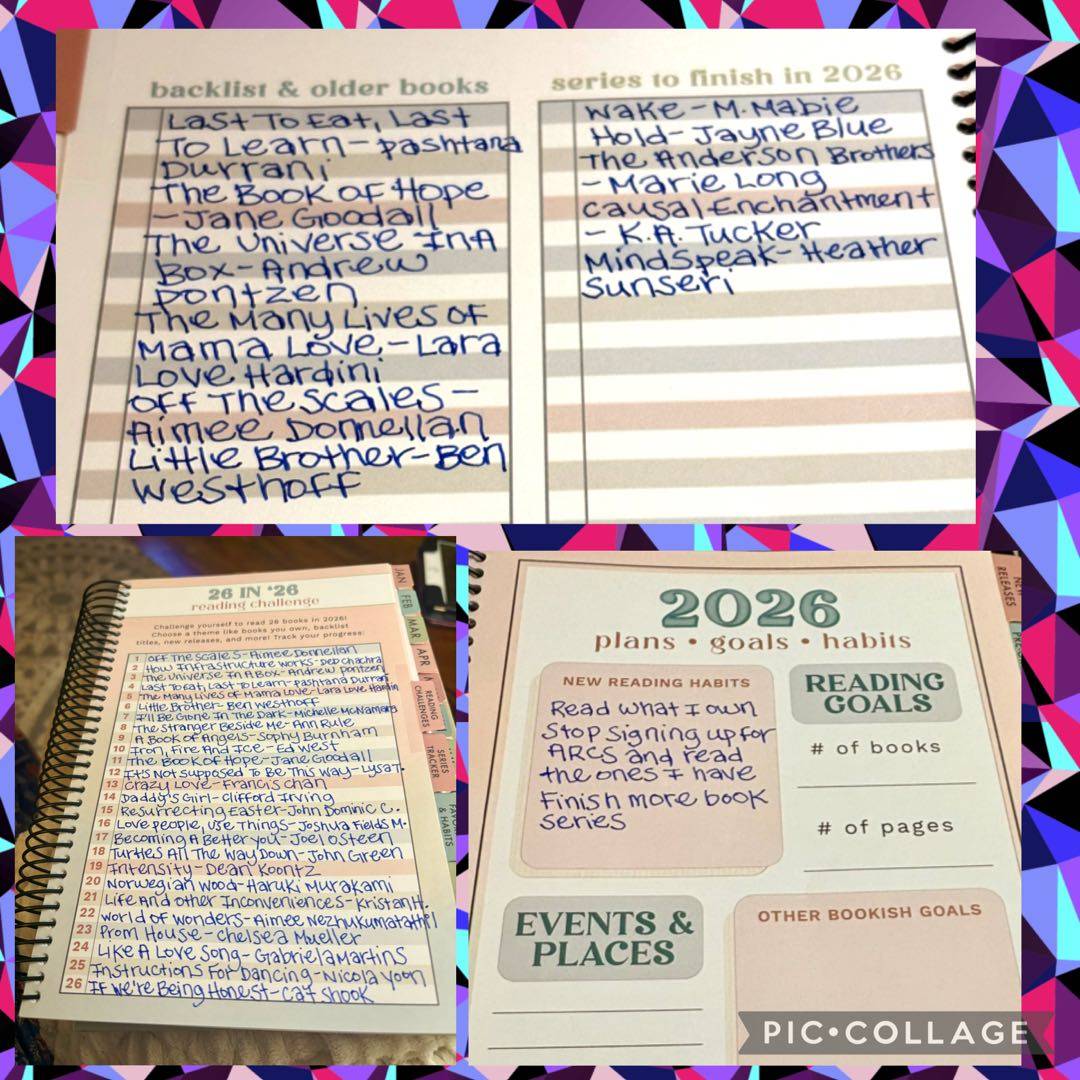 backlist & older books
Last To Eat, Last
To Learn - Pashtana
Durrani
The Book of Hope
- Jane Goodall
The Universe In A
Box - Andrew
Pontzen
The Many Lives of
Mama Love - Lara
Love Hardini
Off The Scales -
Aimee Donnellan
Little Brother - Ben
Westhoff
series to finish in 2026
Wake - M. Mabie
Hold - Jayne Blue
The Anderson Brothers
- Marie Long
Causal Enchantment
- K.A. Tucker
Mindspeak - Heather
Sunseri
26 IN '26
reading challenge
Challenge yourself to read 26 books in 2026!
Choose a theme like books you own, backlist
titles, new releases, and more! Track your progress:
1 Off The Scales - Aimee Donnellan
2 How Infrastructure Works - Deb Chachra
3 The Universe In A Box - Andrew Pontzen
4 Last To Eat, Last To Learn - Pashtana Durrani
5 The Many Lives of Mama Love - Lara Love Hardin
6 Little Brother - Ben Westhoff
7 I'll Be Gone In The Dark - Michelle McNamara
8 The Stranger Beside Me - Ann Rule
9 A Book of Angels - Sophy Burnham
10 Iron, Fire And Ice - Ed West
11 The Book of Hope - Jane Goodall
12 It's Not Supposed To Be This Way - Lysa T.
13 Crazy Love - Francis Chan
14 Daddy's Girl - Clifford Irving
15 Resurrecting Easter - John Dominic C.
16 Love People, Use Things - Joshua Fields M.
17 Becoming A Better You - Joel Osteen
18 Turtles All The Way Down - John Green
19 Intensity - Dean Koontz
20 Norwegian Wood - Haruki Murakami
21 Life And Other Inconveniences - Kristan H.
22 World of Wonders - Aimee Nezhukumatathil
23 Prom House - Chelsea Mueller
24 Like A Love Song - Gabriela Martins
25 Instructions For Dancing - Nicola Yoon
26 If We're Being Honest - Cat Shook
JAN
FEB
MAR
APR
READING
CHALLENGES
SERIES
TRACKER
& HABITS
2026
plans • goals • habits
NEW READING HABITS
Read what I own
Stop signing up for
ARCS and read
the ones I have
Finish more book
series
READING
GOALS
# of books
# of pages
EVENTS &
PLACES
OTHER BOOKISH GOALS
RELEASES
PIC•COLLAGE